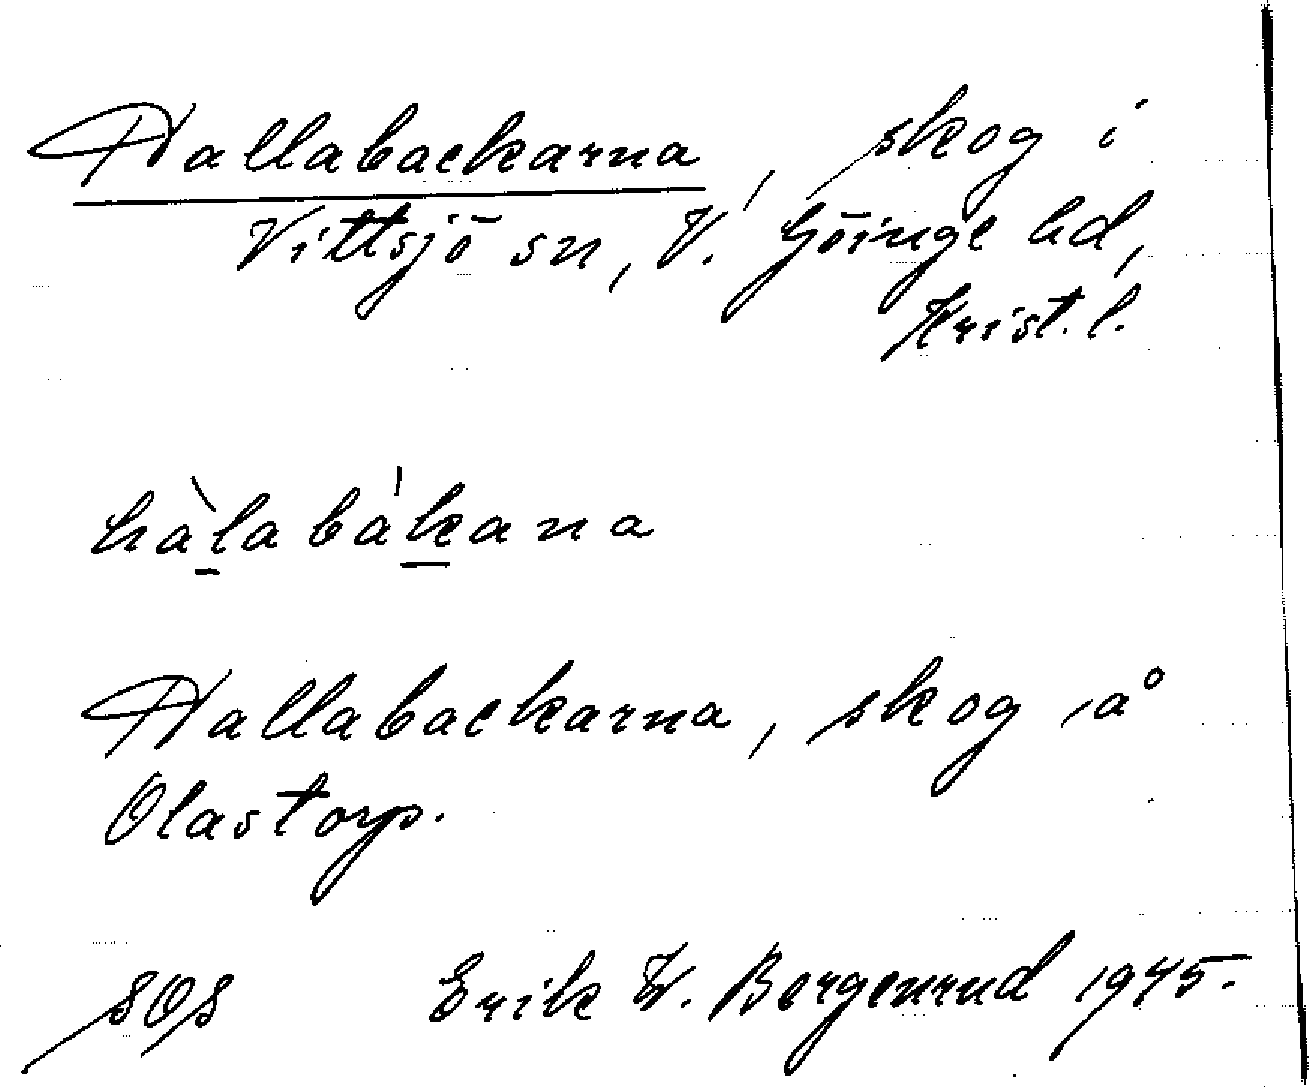 Hallabackarna, skog i
Vittsjö sn, V. Göinge hd,
Krist. l.
hàlabákana
Hallabackarna, skog å
Olastorp.
SOS Erik W. Bergenrud 1945.